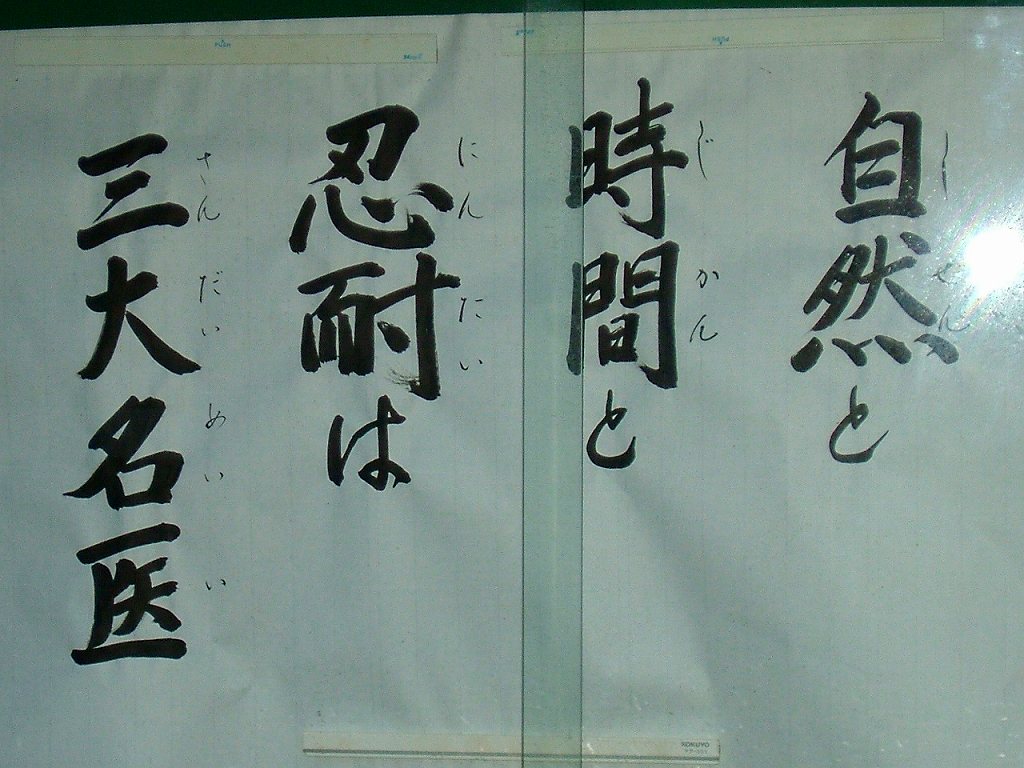 自然と
しぜん
時間と
じかん
忍耐は
にんたい
三大名医
さんだいめいい
KOKUYO